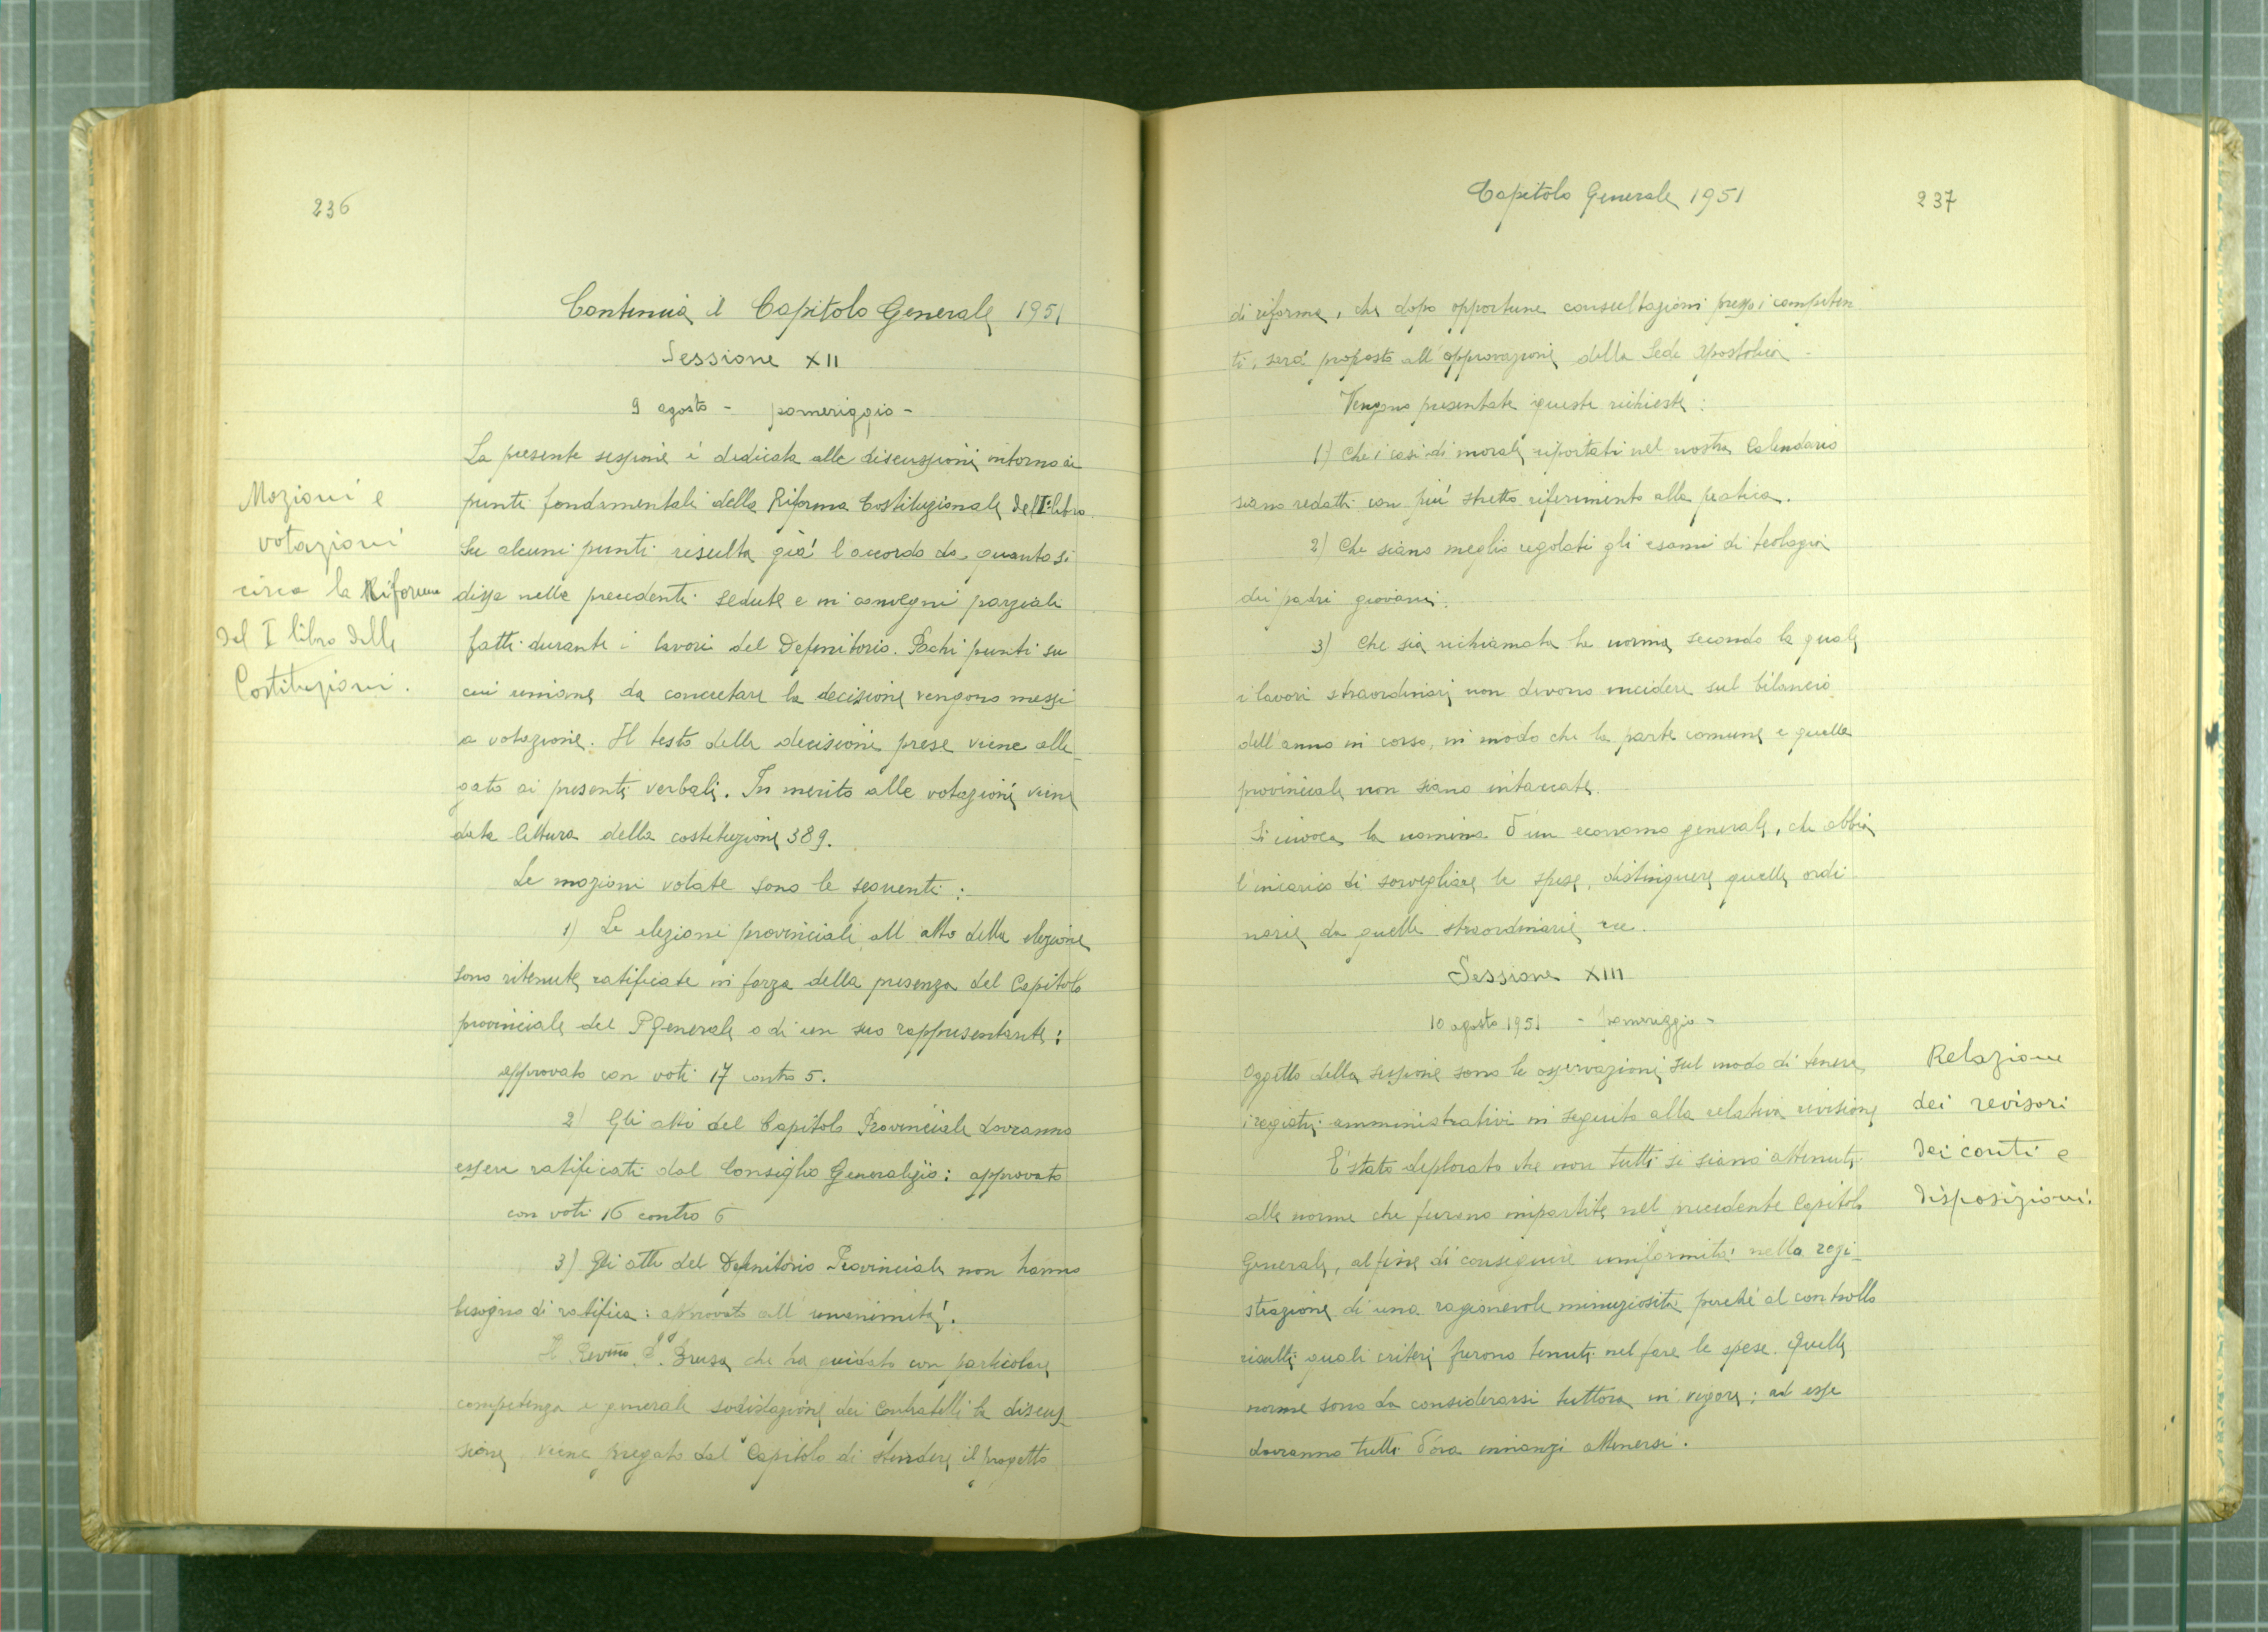 236
Continua il Capitolo Generale 1951
Sessione XII
9 agosto - pomeriggio -
Mozioni e
votazioni
circa la Riforma
del I libro delle
Costituzioni.
La presente sessione è dedicata alle discussioni intorno ai
punti fondamentali della Riforma Costituzionale del I° libro.
Su alcuni punti risulta già l'accordo da quanto si
disse nelle precedenti sedute e in convegni parziali
fatti durante i lavori del Definitorio. Pochi punti su
cui rimane da concretare la decisione vengono messi
a votazione. Il testo delle decisioni prese viene alle-
gato ai presenti verbali. In merito alle votazioni viene
data lettura della costituzione 389.
Le mozioni votate sono le seguenti:
1) Le elezioni provinciali, all'atto della elezione
sono ritenute ratificate in forza della presenza del Capitolo
provinciale del P. Generale o di un suo rappresentante:
approvato con voti 17 contro 5.
2) Gli atti del Capitolo Provinciale dovranno
essere ratificati dal Consiglio Generalizio: approvato
con voti 16 contro 6
3) Gli atti del Definitorio Provinciale non hanno
bisogno di ratifica: approvato all'unanimità.
Il Rev.mo P. Brusa che ha guidato con particolare
competenza e generale sodisfazione dei Confratelli la discus-
sione, viene pregato dal Capitolo di stendere il progetto
Capitolo Generale 1951
237
di riforma, che dopo opportune consultazioni presso i competen-
ti, sarà proposto all'approvazione della Sede Apostolica -
Vengono presentate queste richieste:
1) Che i casi di morale riportati nel nostro Calendario
siano redatti con più stretto riferimento alla pratica.
2) Che siano meglio regolati gli esami di teologia
dei padri giovani.
3) Che sia richiamata la norma, secondo la quale
i lavori straordinari non devono incidere sul bilancio
dell'anno in corso, in modo che la parte comune e quella
provinciale non siano intaccate.
Si invoca la nomina d'un economo generale, che abbia
l'incarico di sorvegliare le spese, distinguere quelle ordi-
narie da quelle straordinarie ecc.
Sessione XIII
10 agosto 1951 - pomeriggio -
Relazione
dei revisori
dei conti e
disposizioni.
Oggetto della sessione sono le osservazioni sul modo di tenere
i registri amministrativi in seguito alla relativa revisione
E' stato deplorato che non tutti si siano attenuti
alle norme che furono impartite nel precedente Capitolo
Generale, al fine di conseguire uniformità nella regi-
strazione di una ragionevole minuziosità perchè al controllo
risulti quali criteri furono tenuti nel fare le spese. Quelle
norme sono da considerarsi tuttora in vigore; ad esse
dovranno tutti d'ora innanzi attenersi.